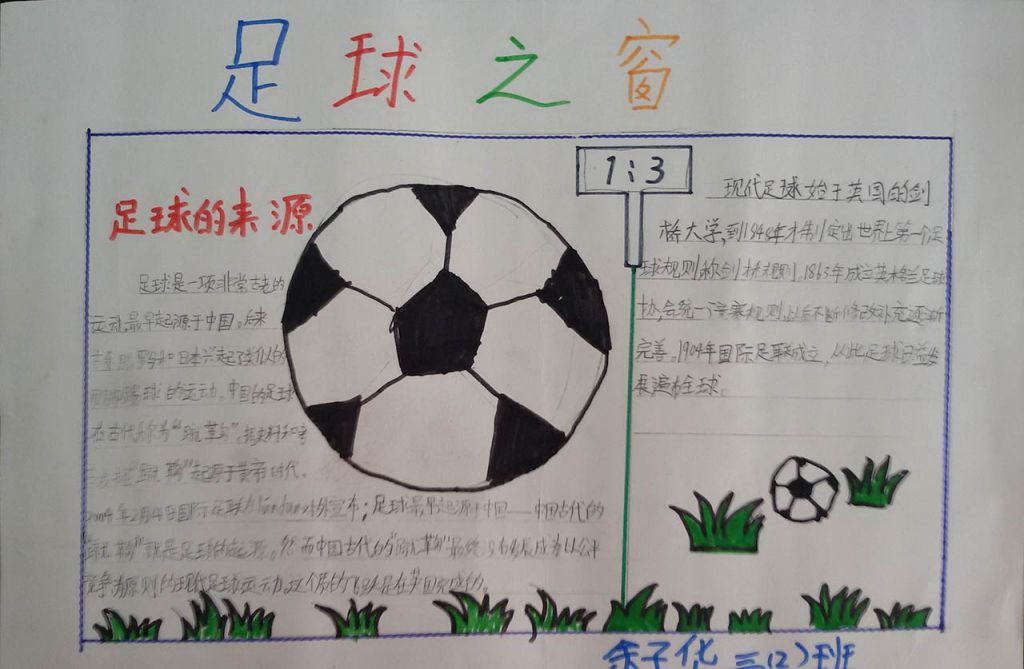 足球之窗
足球的来源
足球是一项非常古老的
运动,最早起源于中国。后来
和日本兴起了类似的
球的运动。中国的足球
在古代称为“蹴鞠”。
“蹴鞠”起源于黄帝时代。
2004年2月4日国际足联在London对外宣布;足球最早起源于中国——中国古代的
“蹴鞠”就是足球的起源。然而中国古代的“蹴鞠”最终没有发展成为以公平
竞争为原则的现代足球运动。这个质的飞跃是在英国完成的。
1:3
现代足球始于英国的剑
桥大学,到1948年才制定出世界上第一个足
球规则称剑桥规则。1863年成立英格兰足球
协会统一了竞赛规则,以后不断修改补充逐渐
完善。1904年国际足联成立,从此足球日益发
展遍布全球。
余子化 三(2)班